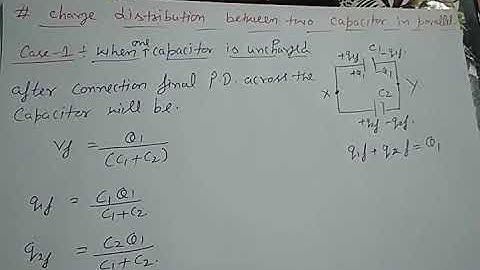 # charge distribution between two capacitor in parallel
Case-1 : when one capacitor is uncharged
after connection final P.D. across the
Capacitor will be.
Vf = Q1 / (C1+C2)
q1f = C1Q1 / C1+C2
q2f = C2Q1 / C1+C2.
C1
+q1f -q1f
+Q1 -Q1
X Y
C2
+q2f -q2f
q1f + q2f = Q1